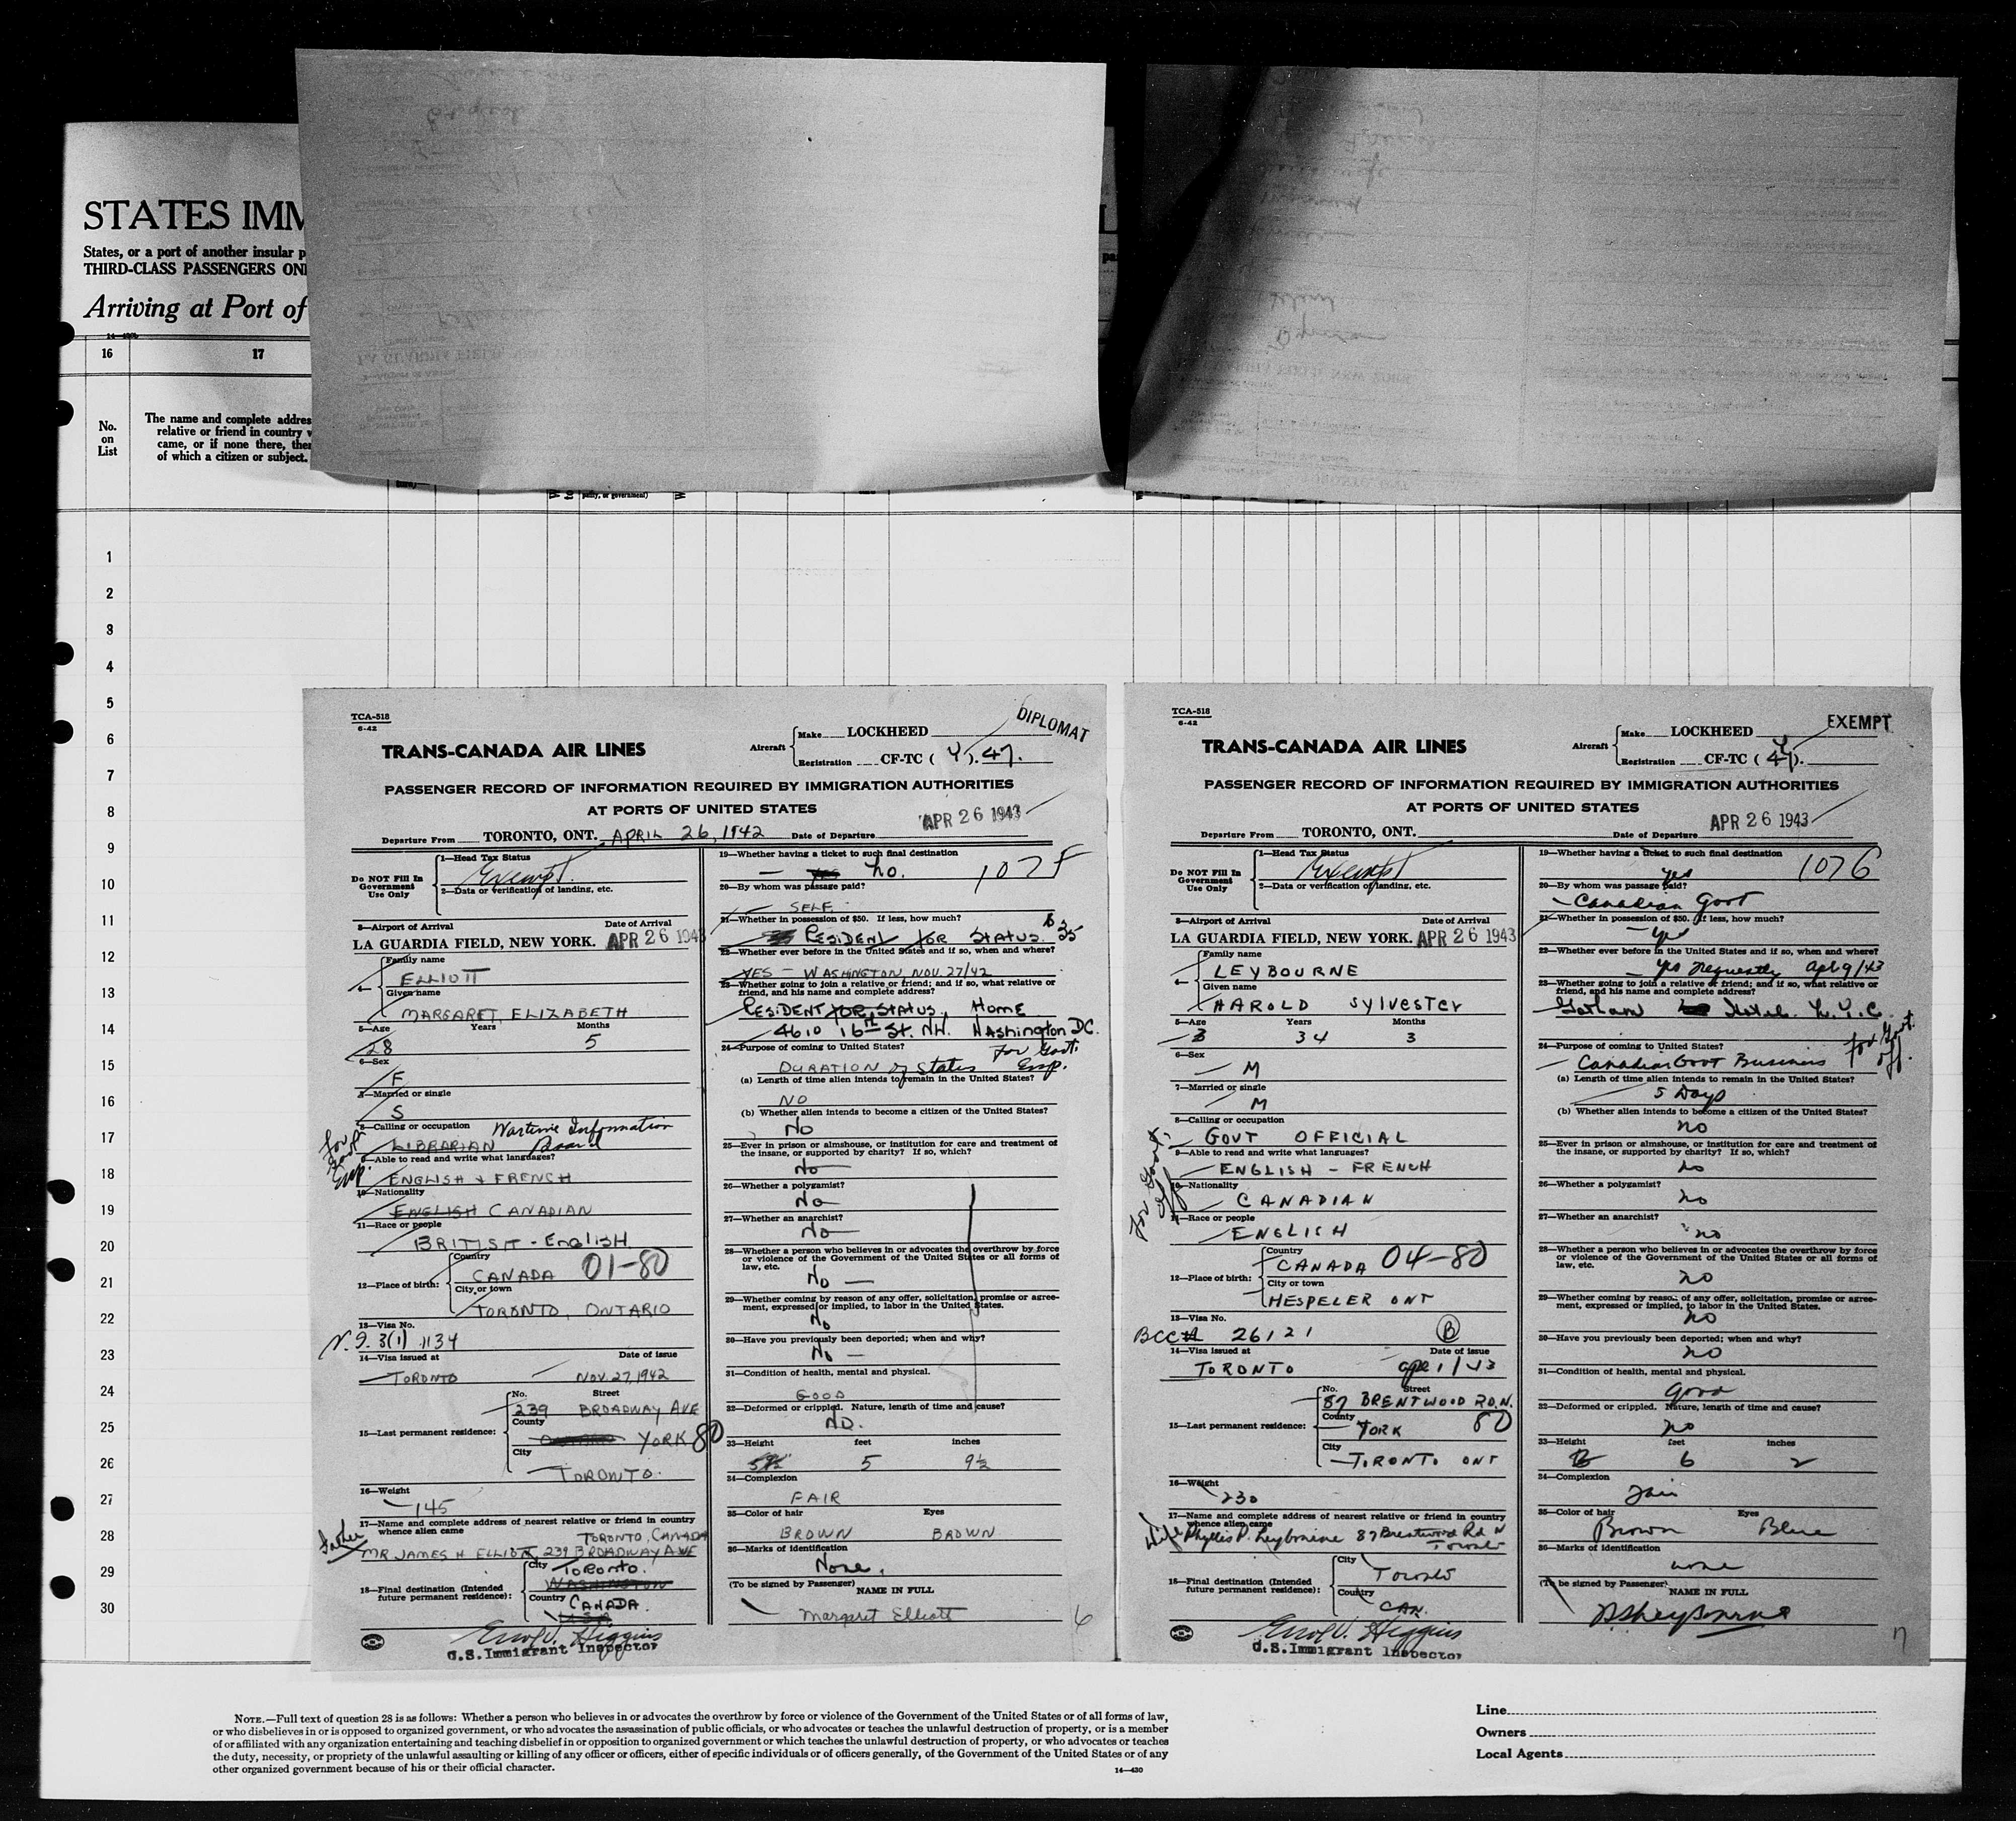 STATES IMM
States, or a port of another insular p
THIRD-CLASS PASSENGERS ONL
Arriving at Port of
16
17
No.
on
List
The name and complete addres
relative or friend in country w
came, or if none there, then
of which a citizen or subject.
1
2
3
4
5
6
7
8
9
10
11
12
13
14
15
16
17
18
19
20
21
22
23
24
25
26
27
28
29
30
TCA-518
6-42
DIPLOMAT
TRANS-CANADA AIR LINES
Aircraft
Make LOCKHEED
Registration CF-TC ( Y ). 47.
PASSENGER RECORD OF INFORMATION REQUIRED BY IMMIGRATION AUTHORITIES
AT PORTS OF UNITED STATES
APR 26 1943
Departure From TORONTO, ONT. APRIL 26, 1942 Date of Departure
Do NOT Fill In Government Use Only
1—Head Tax Status
Exempt
2—Data or verification of landing, etc.
3—Airport of Arrival Date of Arrival
LA GUARDIA FIELD, NEW YORK. APR 26 1943
4—
Family name
ELLIOTT
Given name
MARGARET, ELIZABETH
5—Age Years Months
28 5
6—Sex
F
7—Married or single
S
8—Calling or occupation Wartime Information
LIBRARIAN Board
For Govt Emp.
9—Able to read and write what languages?
ENGLISH & FRENCH
10—Nationality
ENGLISH CANADIAN
11—Race or people
BRITISH - ENGLISH
12—Place of birth:
Country
CANADA 01-80
City or town
TORONTO, ONTARIO
13—Visa No.
3(1) 1134
14—Visa issued at Date of issue
TORONTO NOV. 27, 1942
15—Last permanent residence:
No. Street
239 BROADWAY AVE
County
YORK 80
City
TORONTO.
16—Weight
145
17—Name and complete address of nearest relative or friend in country
whence alien came
TORONTO, CANADA
Father
MR JAMES H ELLIOTT, 239 BROADWAY AVE
18—Final destination (Intended
future permanent residence):
City TORONTO.
WASHINGTON
Country CANADA.
USA
Errol V. Higgins
U.S. Immigrant Inspector
19—Whether having a ticket to such final destination
No. 107
20—By whom was passage paid?
SELF
21—Whether in possession of $50. If less, how much?
RESIDENT FOR STATUS. $35
22—Whether ever before in the United States and if so, when and where?
YES - WASHINGTON, NOV. 27/42
23—Whether going to join a relative or friend; and if so, what relative or
friend, and his name and complete address?
RESIDENT FOR STATUS, HOME
4610 16TH ST. NW. WASHINGTON DC.
24—Purpose of coming to United States?
For Govt. Emp.
DURATION of States
(a) Length of time alien intends to remain in the United States?
NO
(b) Whether alien intends to become a citizen of the United States?
NO
25—Ever in prison or almshouse, or institution for care and treatment of
the insane, or supported by charity? If so, which?
NO
26—Whether a polygamist?
NO
27—Whether an anarchist?
NO
28—Whether a person who believes in or advocates the overthrow by force
or violence of the Government of the United States or all forms of
law, etc.
NO —
29—Whether coming by reason of any offer, solicitation, promise or agree-
ment, expressed or implied, to labor in the United States.
No
30—Have you previously been deported; when and why?
No —
31—Condition of health, mental and physical.
GOOD
32—Deformed or crippled. Nature, length of time and cause?
NO.
33—Height feet inches
5 9½
34—Complexion
FAIR
35—Color of hair Eyes
BROWN BROWN
36—Marks of identification
None.
(To be signed by Passenger) NAME IN FULL
Margaret Elliott
6
TCA-518
6-42
EXEMPT
TRANS-CANADA AIR LINES
Aircraft
Make LOCKHEED
Registration CF-TC ( 47 ). Y
PASSENGER RECORD OF INFORMATION REQUIRED BY IMMIGRATION AUTHORITIES
AT PORTS OF UNITED STATES
Departure From TORONTO, ONT. Date of Departure APR 26 1943
Do NOT Fill In Government Use Only
1—Head Tax Status
Exempt
2—Data or verification of landing, etc.
3—Airport of Arrival Date of Arrival
LA GUARDIA FIELD, NEW YORK. APR 26 1943
4—
Family name
LEYBOURNE
Given name
HAROLD SYLVESTER
5—Age Years Months
34 3
6—Sex
M
7—Married or single
M
8—Calling or occupation
GOVT OFFICIAL
For Govt. off
9—Able to read and write what languages?
ENGLISH - FRENCH
10—Nationality
CANADIAN
11—Race or people
ENGLISH
12—Place of birth:
Country
CANADA 04-80
City or town
HESPELER ONT
13—Visa No.
BCC# 26121 B
14—Visa issued at Date of issue
TORONTO Apr 1/43
15—Last permanent residence:
No. Street
87 BRENTWOOD RD. N.
County
YORK 80
City
TORONTO ONT
16—Weight
230
17—Name and complete address of nearest relative or friend in country
whence alien came
Wife Phyllis P. Leybourne 87 Brentwood Rd N
Toronto
18—Final destination (Intended
future permanent residence):
City
Toronto
Country
CAN.
Errol V. Higgins
U.S. Immigrant Inspector
19—Whether having a ticket to such final destination
yes 1076
20—By whom was passage paid?
Canadian Govt
21—Whether in possession of $50. If less, how much?
yes
22—Whether ever before in the United States and if so, when and where?
yes frequently Apl 9/43
23—Whether going to join a relative or friend; and if so, what relative or
friend, and his name and complete address?
Hotel N.Y.C.
24—Purpose of coming to United States?
Canadian Govt Business For Govt. off.
(a) Length of time alien intends to remain in the United States?
5 Days
(b) Whether alien intends to become a citizen of the United States?
no
25—Ever in prison or almshouse, or institution for care and treatment of
the insane, or supported by charity? If so, which?
no
26—Whether a polygamist?
no
27—Whether an anarchist?
no
28—Whether a person who believes in or advocates the overthrow by force
or violence of the Government of the United States or all forms of
law, etc.
no
29—Whether coming by reason of any offer, solicitation, promise or agree-
ment, expressed or implied, to labor in the United States.
no
30—Have you previously been deported; when and why?
no
31—Condition of health, mental and physical.
Good
32—Deformed or crippled. Nature, length of time and cause?
no
33—Height feet inches
6 2
34—Complexion
Fair
35—Color of hair Eyes
Brown Blue
36—Marks of identification
none
(To be signed by Passenger) NAME IN FULL
7
NOTE.—Full text of question 28 is as follows: Whether a person who believes in or advocates the overthrow by force or violence of the Government of the United States or of all forms of law,
or who disbelieves in or is opposed to organized government, or who advocates the assassination of public officials, or who advocates or teaches the unlawful destruction of property, or is a member
of or affiliated with any organization entertaining and teaching disbelief in or opposition to organized government or which teaches the unlawful destruction of property, or who advocates or teaches
the duty, necessity, or propriety of the unlawful assaulting or killing of any officer or officers, either of specific individuals or of officers generally, of the Government of the United States or of any
other organized government because of his or their official character.
14—430
Line
Owners
Local Agents